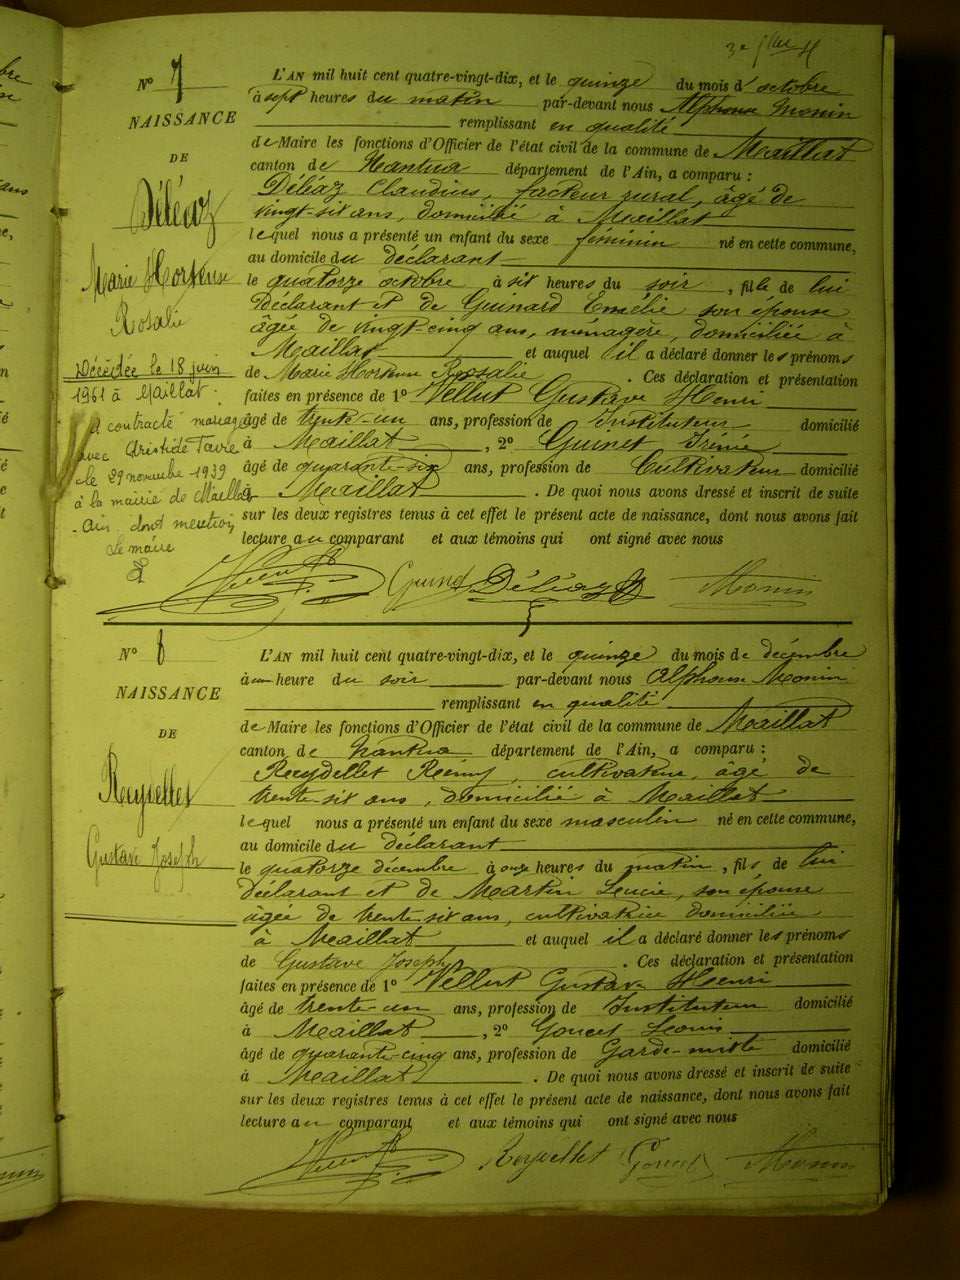 N° 7
NAISSANCE
DE
Déléaz
Marie Hortense
Rosalie
Décédée le 18 juin
1961 à Maillat.
A contracté mariage
avec Aristide Favre
le 29 novembre 1939
à la mairie de Maillat
Ain dont mention
Le maire
L'AN mil huit cent quatre-vingt-dix, et le quinze du mois d'octobre
à sept heures du matin par-devant nous Alphonse Monin
remplissant en qualité
de Maire les fonctions d'Officier de l'état civil de la commune de Maillat
canton de Nantua département de l'Ain, a comparu :
Déléaz Claudius, facteur rural, âgé de
vingt-six ans, domicilié à Maillat
lequel nous a présenté un enfant du sexe féminin né en cette commune,
au domicile du déclarant
le quatorze octobre à six heures du soir, fille de lui
Déclarant et de Guinard Emélie son épouse
âgée de vingt-cinq ans, ménagère, domiciliée à
Maillat et auquel il a déclaré donner les prénoms
de Marie Hortense Rosalie. Ces déclaration et présentation
faites en présence de 1° Vellut Gustave Henri
âgé de trente-un ans, profession de Instituteur domicilié
à Maillat, 2° Guinet Irénée
âgé de quarante-six ans, profession de Cultivateur domicilié
à Maillat. De quoi nous avons dressé et inscrit de suite
sur les deux registres tenus à cet effet le présent acte de naissance, dont nous avons fait
lecture au comparant et aux témoins qui ont signé avec nous
Vellut Guinet Déléaz Monin
N° 8
NAISSANCE
DE
Reydellet
Gustave Joseph
L'AN mil huit cent quatre-vingt-dix, et le quinze du mois de décembre
à une heure du soir par-devant nous Alphonse Monin
remplissant en qualité
de Maire les fonctions d'Officier de l'état civil de la commune de Maillat
canton de Nantua département de l'Ain, a comparu :
Reydellet Rémy, cultivateur, âgé de
trente-six ans, domicilié à Maillat
lequel nous a présenté un enfant du sexe masculin né en cette commune,
au domicile du déclarant
le quatorze décembre à onze heures du matin, fils de lui
Déclarant et de Martin Lucie, son épouse
âgée de trente-six ans, cultivatrice domiciliée
à Maillat et auquel il a déclaré donner les prénoms
de Gustave Joseph. Ces déclaration et présentation
faites en présence de 1° Vellut Gustave Henri
âgé de trente-un ans, profession de Instituteur domicilié
à Maillat, 2° Goucet Louis
âgé de quarante-cinq ans, profession de Garde-mixte domicilié
à Maillat. De quoi nous avons dressé et inscrit de suite
sur les deux registres tenus à cet effet le présent acte de naissance, dont nous avons fait
lecture au comparant et aux témoins qui ont signé avec nous
Vellut Reydellet Goucet Monin